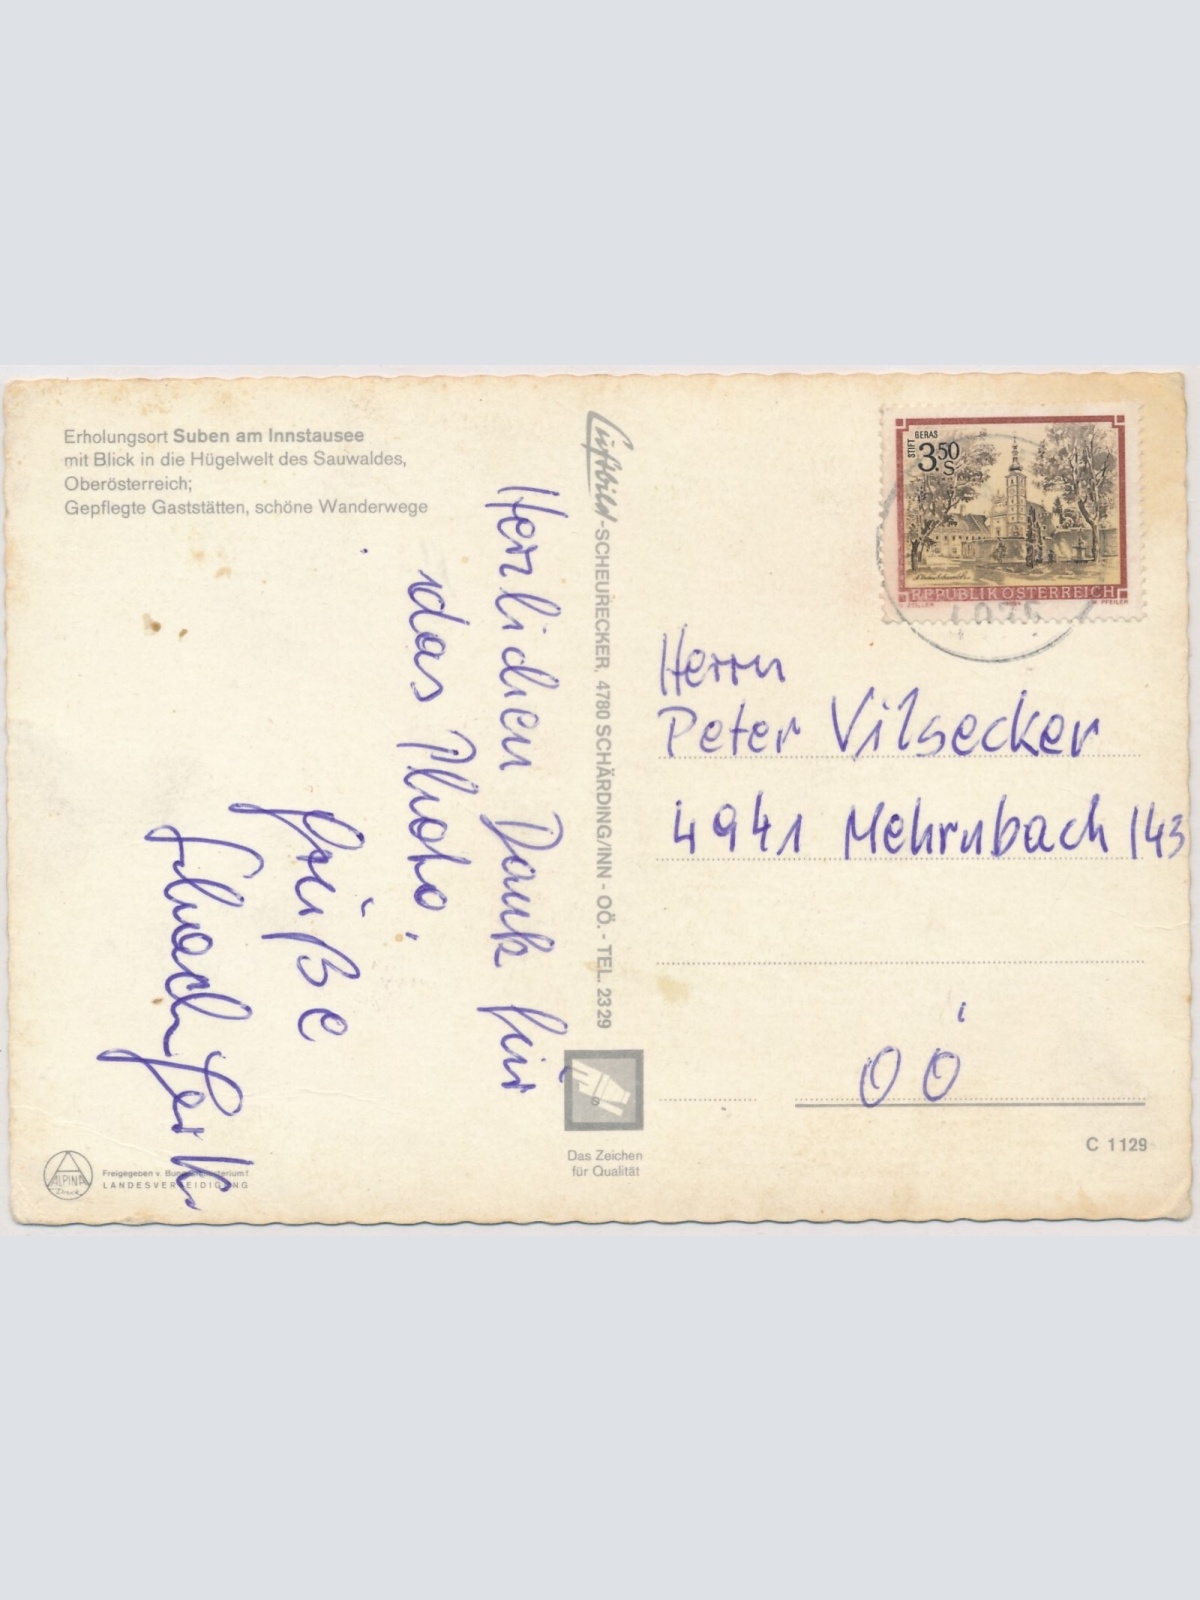 Erholungsort Suben am Innstausee
mit Blick in die Hügelwelt des Sauwaldes,
Oberösterreich;
Gepflegte Gaststätten, schöne Wanderwege
Herzlichen Dank für
das Photo,
Grüße
Luftbild-SCHEURECKER, 4780 SCHÄRDING/INN - OÖ. - TEL. 2329
Das Zeichen
für Qualität
ALPINA
Druck
Freigegeben v.
LANDESVERTEIDIGUNG
STIFT GERAS
3.50
S
REPUBLIK ÖSTERREICH
W. PFEILER
Herrn
Peter Vilsecker
4941 Mehrnbach 143
OÖ
C 1129